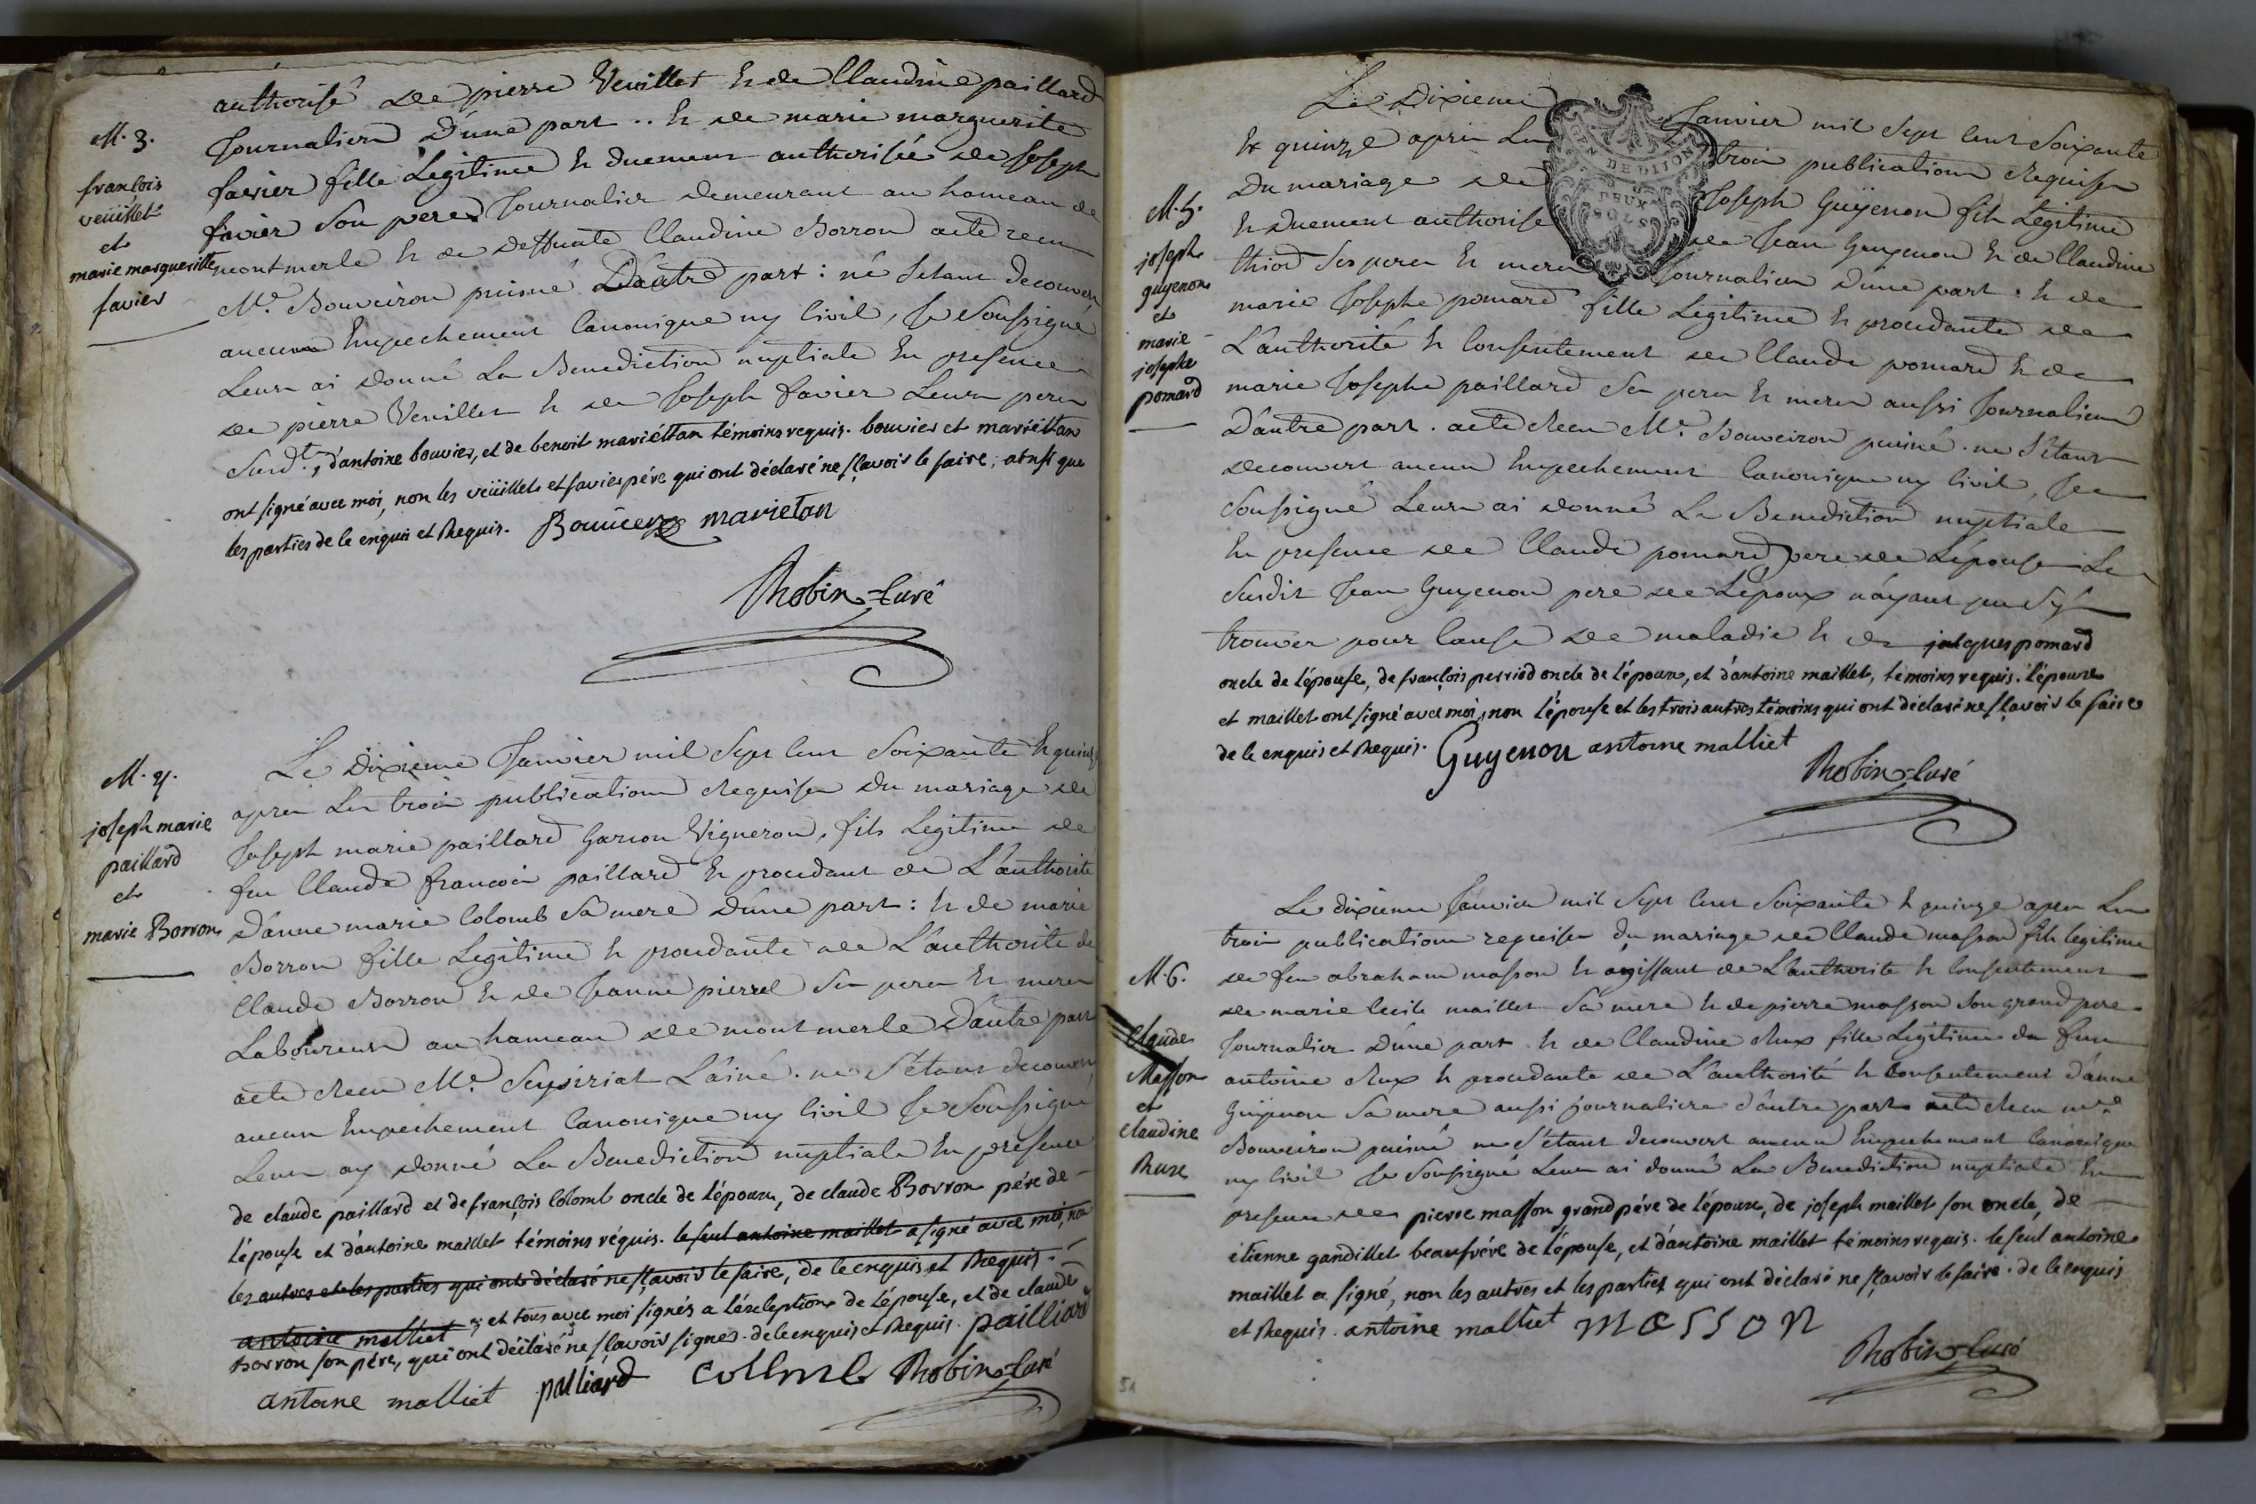 authorisé de pierre Veuillet & de Claudine paillard
M. 3.
journaliers D'une part .. & de marie marguerite
françois
veüillet
et
marie margueritte
favier
favier fille Legitime & duement authorisée de joseph
favier son pere journalier demeurant au hameau de
montmerle & de deffunte Claudine Borron acte recu
Me. Bouveiron puiné D'autre part : né s'etant decouvert
aucun Empechement Canonique ny Civil, je Soussigné
Leurs ai donné La Benediction nuptiale En presence
de pierre Veuillet & de Joseph favier Leurs peres
Susdt., d'antoine bouvier, et de benoit mariéttan témoins requis. bouvier et mariéttan
ont signé avec moi, non les veüillet et favier pére qui ont déclaré ne sçavoir le faire, ainsi que
les parties de ce enquis et Requis. Bouvier marietan
Robin Curé
M. 4.
joseph marie
paillard
et
marie Borron
Le Dixieme Janvier mil Sept Cent Soixante & quinze
apres Les trois publications Requises du mariage de
Joseph marie paillard Garcon Vigneron, fils Legitime de
feu Claude francois paillard & procedant de L'authorité
D'anne marie Colomb Sa mere D'une part : & de marie
Borron fille Legitime & procedante de L'authorite de
Claude Borron & de Jeanne pierrel Ses peres & meres
Laboureurs au hameau de montmerle D'autre part
acte Recu Me. Seysiriat L'ainé. ne S'etant decouvert
aucun Empechement Canonique ny Civil je Soussigné
Leurs ay donné La Benediction nuptiale En presence
de claude paillard et de françois Colomb oncle de l'époux, de claude Borron pére de
l'épouse et d'antoine maillet témoins réquis. le seul antoine maillet a signé avec moi, non
les autres et les parties qui ont déclaré ne sçavoir le faire, de ce enquis et Requis.
antoine malliet et tous avec moi signés a l'éxception de l'épouse, et de claude
Borron son pére, qui ont déclaré ne sçavoir signer. de ce enquis et Requis. pailliard
antoine malliet palliard Collmb Robin Curé
GEN DE DIJON
DEUX
SOLS
M. 5.
joseph
guyenon
et
marie
josephe
pomard
Le Dixieme Janvier mil Sept Cent Soixante
& quinze apres Les trois publications Requises
Du mariage de Joseph Guÿenon fils Legitime
& duement authorise de Jean Guyenon & de Claudine
thiod Ses peres & meres Journaliers D'une part. & de
marie Josephe pomard fille Legitime & procedante de
L'authorité & Consentement de Claude pomard & de
marie Josephe paillard Ses peres & meres aussi Journaliers
D'autre part. acte Recu Me. Bouveiron puiné. ne S'etant
decouvert aucun Empechement Canonique ny Civil, je
Soussigné Leurs ai donné La Benediction nuptiale
En presence de Claude pomard pere de L'épouse Le
Susdit Jean Guyenon pere de L'époux n'ayant pu S'y
trouver pour Cause de maladie & de jacques pomard
oncle de l'épouse, de françois perriod oncle de l'époux, et d'antoine maillet, témoins requis. l'époux
et maillet ont signé avec moi, non l'épouse et les trois autres témoins qui ont déclaré ne sçavoir le faire
de ce enquis et Requis. Guyenon antoine malliet
Robin Curé
M. 6.
Claude
Masson
et
Claudine
Ruxe
Le dixieme Janvier mil Sept Cent Soixante & quinze apres Les
trois publications requises du mariage de Claude masson fils legitime
de feu abraham masson & agissant de L'authorite & Consentement
de marie Cecile maillet Sa mere & de pierre masson Son grand pere
Journalier D'une part. & de Claudine Rux fille Legitime de feu
antoine Rux & procedante de L'authorité & Consentement d'anne
Guÿenon Sa mere aussi journaliere d'autre part acte Recu me.
Bouveiron puiné ne S'étant decouvert aucun Empechement Canonique
ny Civil je Soussigné Leurs ai donné La Benediction nuptiale En
presence de pierre masson grand pére de l'époux, de joseph maillet son oncle, de
étienne gandillet beaufrére de l'épouse, et d'antoine maillet témoins requis. le seul antoine
maillet a signé, non les autres et les parties qui ont déclaré ne sçavoir le faire. de ce enquis
et Requis. antoine malliet masson
Robin Curé
51